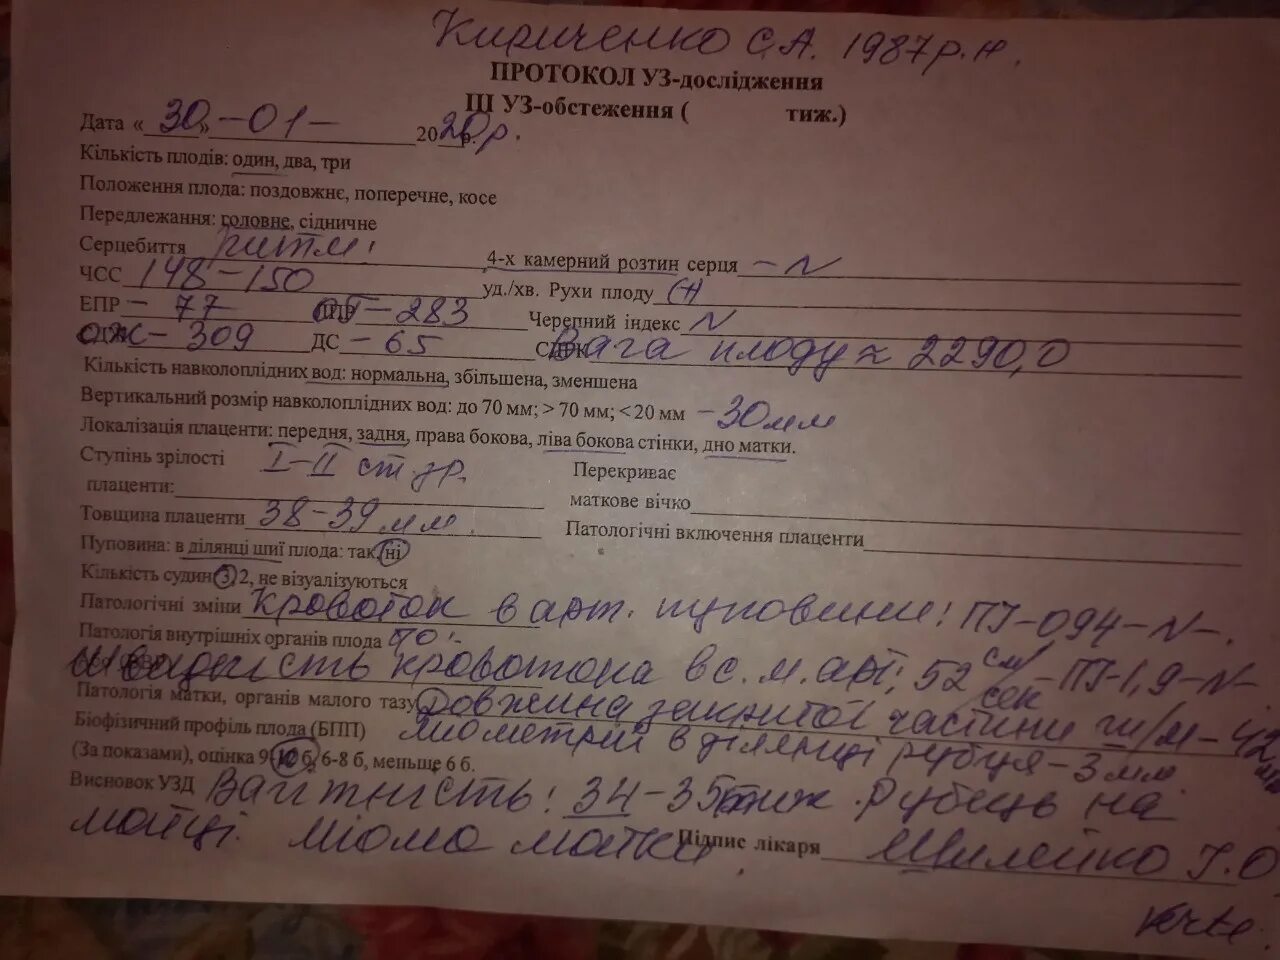 Кириченко С.А. 1987р.н.
ПРОТОКОЛ УЗ-дослідження
ІІІ УЗ-обстеження ( тиж.)
Дата « 30 » -01- 2020р.
Кількість плодів: один, два, три
Положення плода: поздовжнє, поперечне, косе
Передлежання: головне, сідничне
Серцебиття ритм. 4-х камерний розтин серця - N
ЧСС 148-150 уд./хв. Рухи плоду (+)
БПР - 77 ОГ - 283 Черепний індекс N
ОЖ - 309 ДС - 65 Вага плоду ≈ 2290,0
Кількість навколоплідних вод: нормальна, збільшена, зменшена
Вертикальний розмір навколоплідних вод: до 70 мм; > 70 мм; < 20 мм - 30 мм
Локалізація плаценти: передня, задня, права бокова, ліва бокова стінки, дно матки.
Ступінь зрілості І-ІІ ст.зр. Перекриває
плаценти: маткове вічко
Товщина плаценти 38-39 мм. Патологічні включення плаценти
Пуповина: в ділянці шиї плода: так, ні
Кількість судин 3, 2, не візуалізуються
Патологічні зміни Кровоток в арт. пуповини: ПІ-094-N-.
Патологія внутрішніх органів плода
Швидкість кровотока в с.м.арт; 52 см/сек ПІ-1,9-N-
Патологія матки, органів малого тазу Довжина закритої частини ш/м-42мм
Біофізичний профіль плода (БПП) Миометрій в ділянці рубця - 3мм
(За показами), оцінка 9-10 б, 6-8 б, меньше 6 б.
Висновок УЗД Вагітність: 34-35тиж. Рубець на
матці. Міома матки Підпис лікаря Шилейко І.О